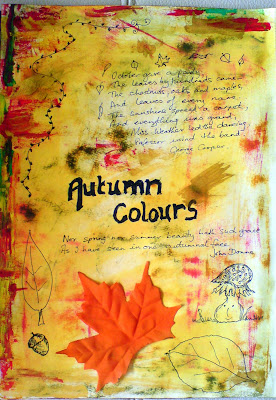 October gave a party;
The leaves by hundreds came
The chestnuts, oaks and maples,
And leaves of every name.
The sunshine spread a carpet,
And everything was grand,
Miss Weather led the dancing
Professor Wind the band.
George Cooper
Autumn
Colours
Nor spring nor summer beauty hath such grace
As I have seen in one autumnal face
John Donne